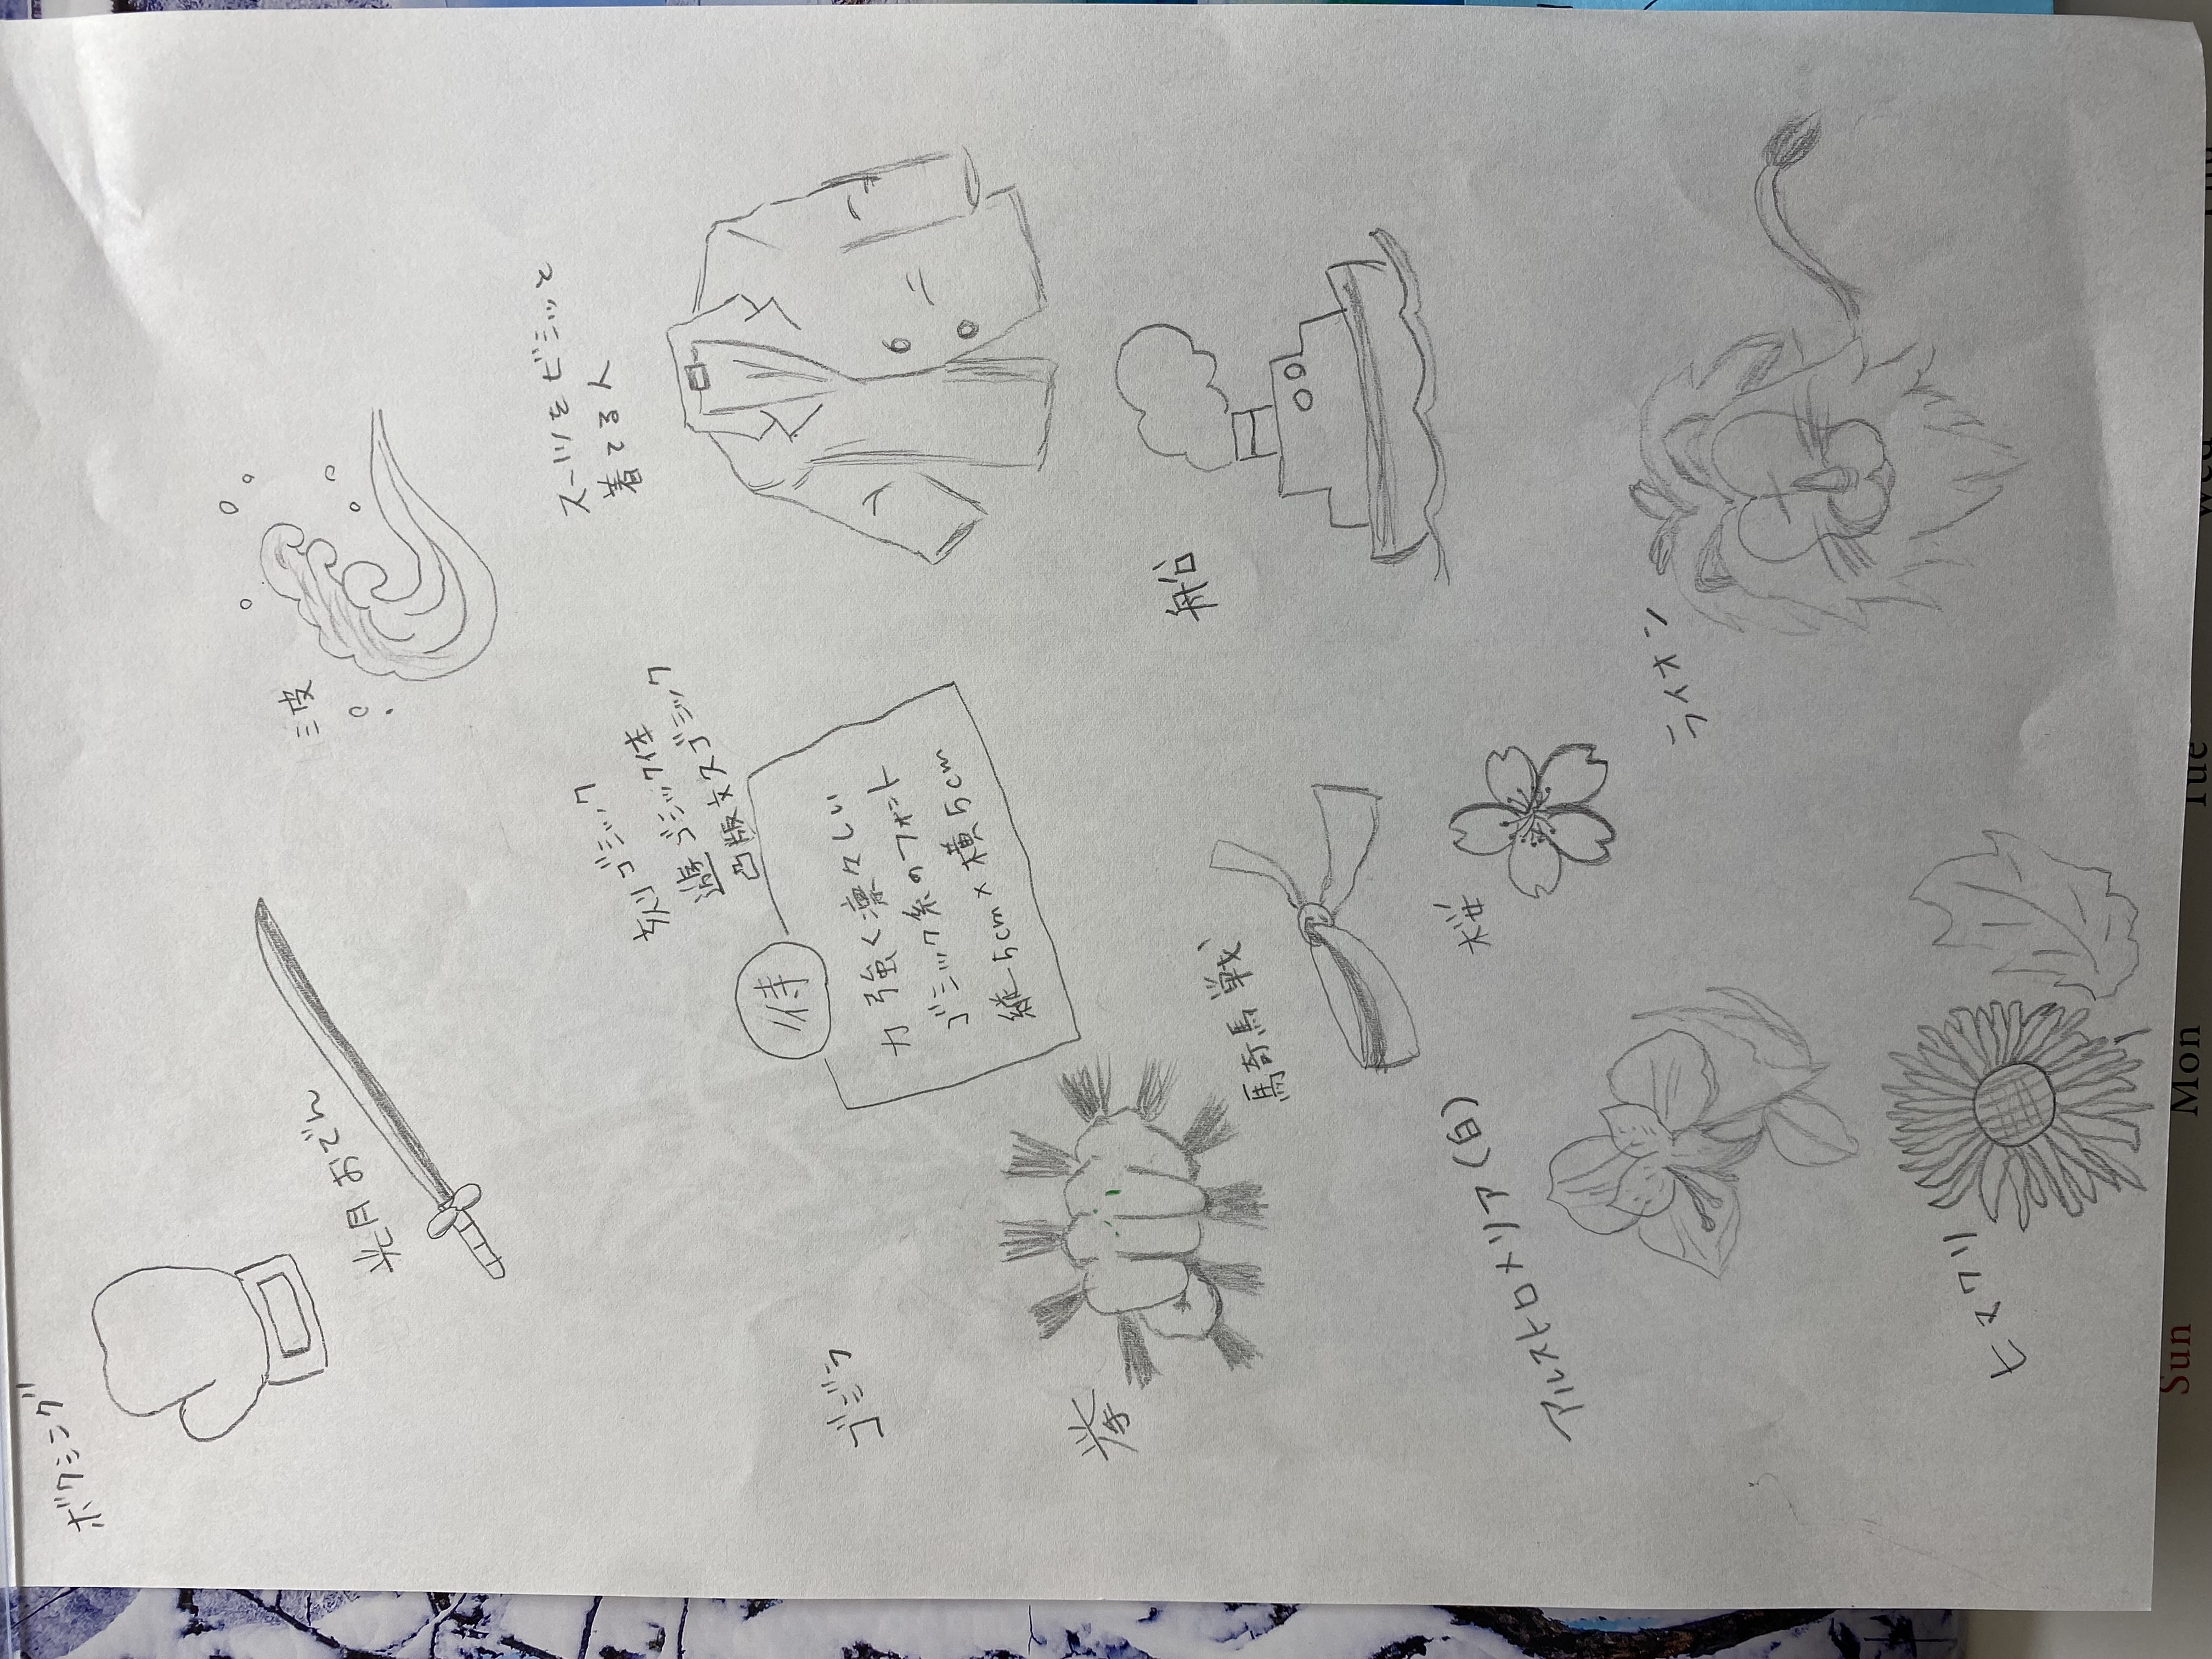 ボクシング
光月おでん
波
スーツをビシッと
着てる人
刻ゴシック
遊ゴシック体
凸版文久ゴシック
侍
力強く凛々しい
ゴシック系のフォント
縦5cm×横5cm
ゴジラ
拳
船
騎馬戦
アルストロメリア(白)
桜
ライオン
ヒマワリ
Sun Mon Tue Wed Thu